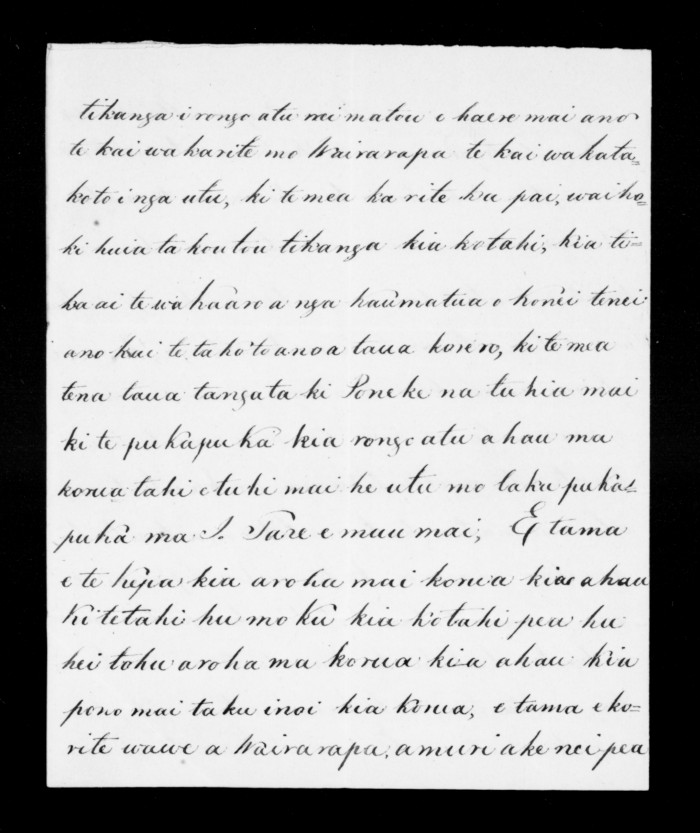 tikanga i rongo atu nei matou e haere mai ano
te kai wakarite mo Wairarapa te kai wakata=
koto i nga utu, ki te mea ka rite ka pai, waiho=
ki huia ta koutou tikanga kia kotahi, kia ti=
ka ai te wahaaro a nga haumatua o konei tenei
ano kai te takoto ano a taua korero, ki te mea
tena taua tangata ki Poneke na tuhia mai
ki te pukapuka kia rongo atu ahau ma
korua tahi e tuhi mai he utu mo taku puka=
puka ma J. Tare e mau mai; E tama
e te Kepa kia aroha mai korua kia ahau
Ki tetahi hu mo ku kia kotahi pea hu
hei tohu aroha ma korua kia ahau kia
pono mai taku inoi kia korua, e tama e ko=
rite wawe a Wairarapa, amuri ake nei pea